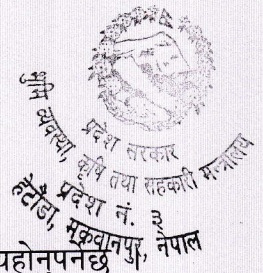 प्रदेश सरकार
भूमि व्यवस्था, कृषि तथा सहकारी मन्त्रालय
प्रदेश नं. ३
हेटौंडा, मकवानपुर, नेपाल
यहोनुपर्नेछ।